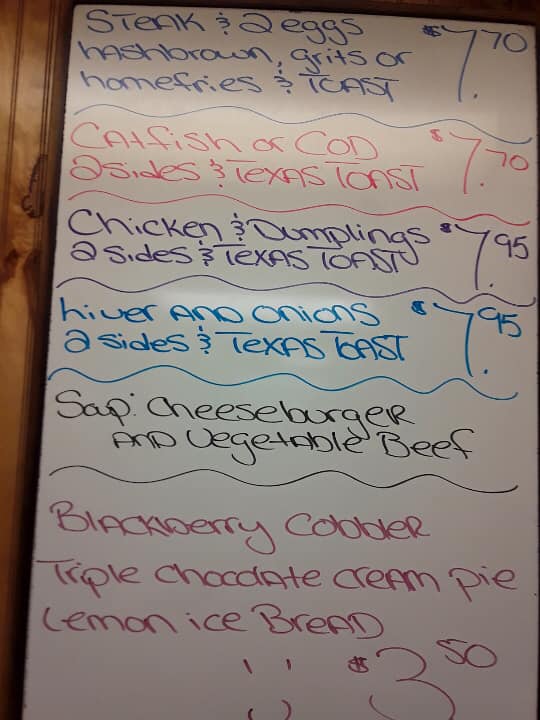 STEAK & 2 eggs $7.70
hashbrown, grits or
homefries & TOAST
CATfish or COD $7.70
2 sides & TEXAS TOAST
Chicken & Dumplings $7.95
2 sides & TEXAS TOAST
Liver AND Onions $7.95
2 sides & TEXAS TOAST
Soup: Cheeseburger
AND Vegetable Beef
Blackberry Cobbler
Triple Chocolate Cream pie
Lemon ice BREAD
$3.50